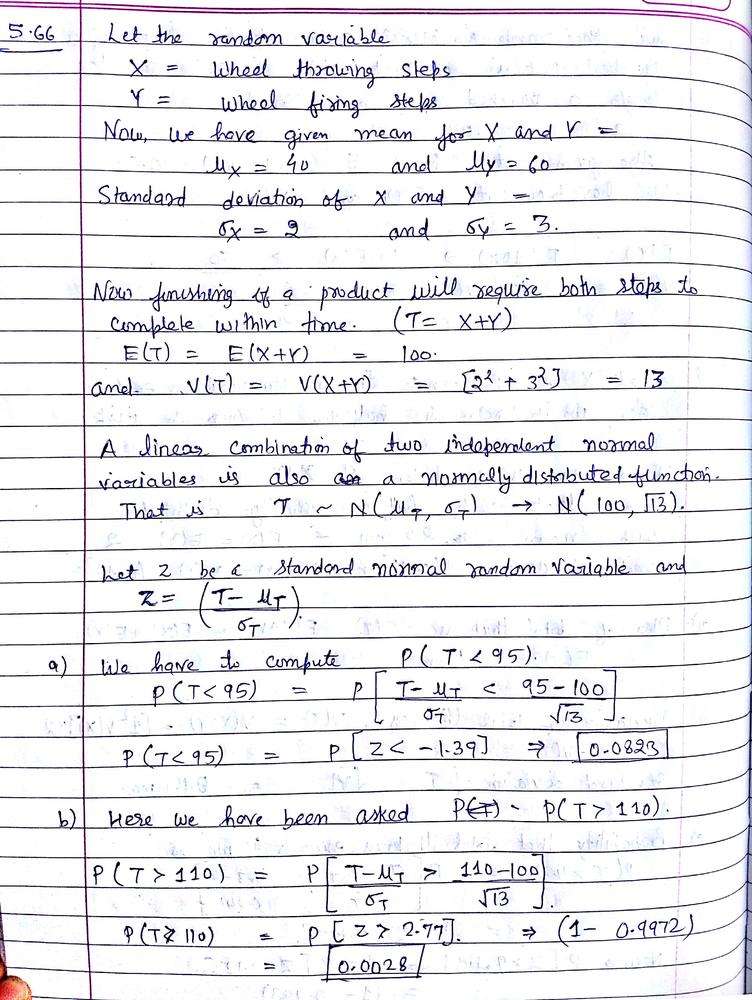 5.66 Let the random variable
X = Wheel throwing steps
Y = Wheel firing steps
Now, we have given mean for X and Y =
μx = 40 and μy = 60
Standard deviation of X and Y =
σx = 2 and σy = 3.
Now finishing of a product will require both steps to
complete within time. (T = X+Y)
E(T) = E(X+Y) = 100.
and. V(T) = V(X+Y) = [2² + 3²] = 13
A linear combination of two independent normal
variables is also a normally distributed function.
That is T ~ N(μT, σT) → N(100, √13).
Let Z be a standard normal random variable and
Z = (T - μT / σT).
a) We have to compute P(T < 95).
P(T < 95) = P[T - μT / σT < 95-100 / √13]
P(T < 95) = P[Z < -1.39] ⇒ 0.0823
b) Here we have been asked P(T) - P(T > 110).
P(T > 110) = P[T - μT / σT > 110-100 / √13].
P(T > 110) = P[Z > 2.77]. ⇒ (1 - 0.9972)
= 0.0028